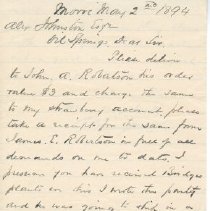 Moore May 2nd 1894
Alex Johnston Esq
Oil Springs Dear Sir
Please deliver
to John A. Robertson his order
value $3 and charge the same
to my Strawberry account, please
take a receipt for the same from
James E. Robertson in free of all
demands on me to date. I
presume you have received
plants ere this I wrote the party
and he was going to ship in a